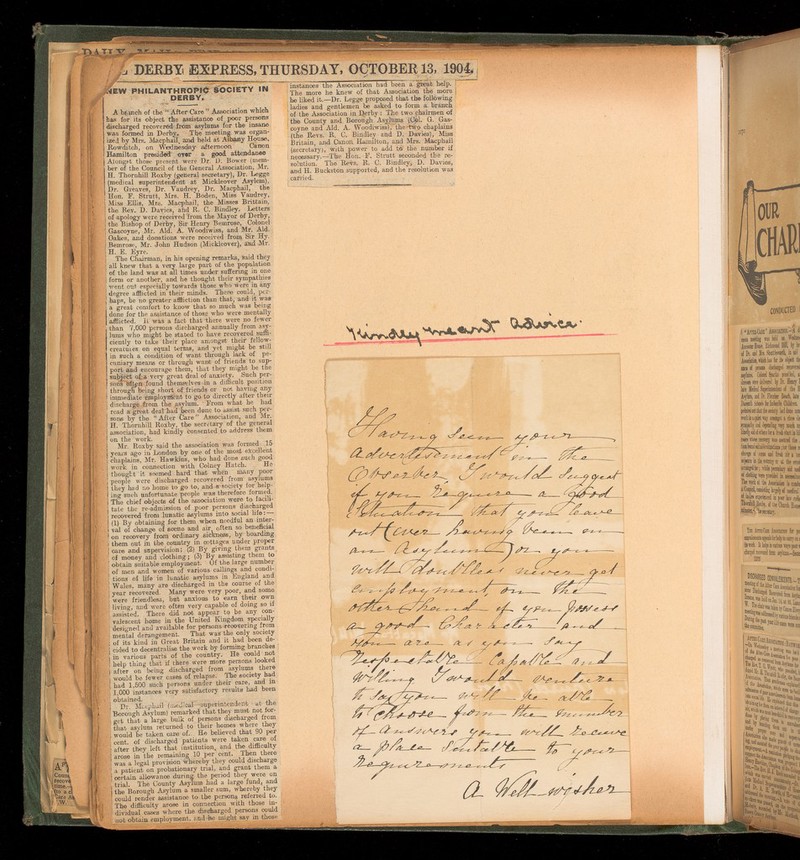 DERBY EXPRESS, THURSDAY, OCTOBER 13, 1904.
NEW PHILANTHROPIC SOCIETY IN
DERBY.
A branch of the "After Care" Association which
has for its object the assistance of poor persons
discharged recovered from asylums for the insane
was formed in Derby. The meeting was organ-
ized by Mrs. Macphail, and held at Albany House,
Rowditch, on Wednesday afternoon. Canon
Hamilton presided over a good attendance
Alongst those present were Dr. D. Bower (mem-
ber of the Council of the General Association, Mr.
H. Thornhill Roxby (general secretary), Dr. Legge
(medical superintendent at Mickleover Asylum),
Dr. Greaves, Dr. Vaudrey, Dr. Macphail, the
Hon. F. Strutt, Mrs. H. Boden, Miss Vaudrey,
Miss Ellis, Mrs. Macphail, the Misses Brittain,
the Rev. D. Davies, and R. C. Bindley. Letters
of apology were received from the Mayor of Derby,
the Bishop of Derby, Sir Henry Bemrose, Colonel
Gascoyne, Mr. Ald. A. Woodiwiss, and Mr. Ald.
Oakes, and donations were received from Sir Hy.
Bemrose, Mr. John Hudson (Mickleover), and Mr.
H. E. Eyre.
The Chairman, in his opening remarks, said they
all knew that a very large part of the population
of the land was at all times under suffering in one
form or another, and he thought their sympathies
went out especially towards those who were in any
degree afflicted in their minds. There could, per-
haps, be no greater affliction than that, and it was
a great comfort to know that so much was being
done for the assistance of those who were mentally
afflicted. It was a fact that there were no fewer
than 7,000 persons discharged annually from asy-
lums who might be stated to have recovered suffi-
ciently to take their place amongst their fellow-
creatures on equal terms, and yet might be still
in such a condition of want through lack of pe-
cuniary means or through want of friends to sup-
port and encourage them, that they might be the
subject of a very great deal of anxiety. Such per-
sons often found themselves in a difficult position
through being short of friends or not having any
immediate employment to go to directly after their
discharge from the asylum. From what he had
read a great deal had been done to assist such per-
sons by the "After Care" Association, and Mr.
H. Thornhill Roxby, the secretary of the general
association, had kindly consented to address them
on the work.
Mr. Roxby said the association was formed 15
years ago in London by one of the most excellent
chaplains, Mr. Hawkins, who had done such good
work in connection with Colney Hatch. He
thought it seemed hard that when many poor
people were discharged recovered from asylums
they had no home to go to, and a society for help-
ing such unfortunate people was therefore formed.
The chief objects of the association were to facili-
tate the re-admission of poor persons discharged
recovered from lunatic asylums into social life:—
(1) By obtaining for them when needful an inter-
val of change of scene and air, often so beneficial
on recovery from ordinary sickness, by boarding
them out in the country in cottages under proper
care and supervision; (2) By giving them grants
of money and clothing; (3) By assisting them to
obtain suitable employment. Of the large number
of men and women of various callings and condi-
tions of life in lunatic asylums in England and
Wales, many are discharged in the course of the
year recovered. Many were very poor, and some
were friendless, but anxious to earn their own
living, and were often very capable of doing so if
assisted. There did not appear to be any con-
valescent home in the United Kingdom specially
designed and available for persons recovering from
mental derangement. That was the only society
of its kind in Great Britain and it had been de-
cided to decentralise the work by forming branches
in various parts of the country. He could not
help thing that if there were more persons looked
after on being discharged from asylums there
would be fewer cases of relapse. The society had
had 1,500 such persons under their care, and in
1,000 instances very satisfactory results had been
obtained.
Dr. Macphail (medical superintendent at the
Borough Asylum) remarked that they must not for-
get that a large bulk of persons discharged from
that asylum returned to their homes where they
would be taken care of. He believed that 90 per
cent. of discharged patients were taken care of
after they left that institution, and the difficulty
arose in the remaining 10 per cent. Then there
was a legal provision whereby they could discharge
a patient on probationary trial, and grant them a
certain allowance during the period they were on
trial. The County Asylum had a large fund, and
the Borough Asylum a smaller sum, whereby they
could render assistance to the persons referred to.
The difficulty arose in connection with those in-
dividual cases where the discharged persons could
not obtain employment, and he might say in those
instances the Association had been a great help.
The more he knew of that Association the more
he liked it.—Dr. Legge proposed that the following
ladies and gentlemen be asked to form a branch
of the Association in Derby: The two chairmen of
the County and Borough Asylums (Col. G. Gas-
coyne and Ald. A. Woodiwiss), the two chaplains
(the Revs. R. C. Bindley and D. Davies), Miss
Britain, and Canon Hamilton, and Mrs. Macphail
(secretary), with power to add to the number if
necessary.—The Hon. F. Strutt seconded the re-
solution. The Revs. R. C. Bindley, D. Davies,
and H. Buckston supported, and the resolution was
carried.
Kindley meant advice.
Having seen your
advertisement in the
Observer, I would suggest
if you require a good
Situation that you leave
out (ever having been in
an asylum) or you
will doubtless never get
employment, on the
other hand if you possess
a good Character and
you are as you say
respectable Capable and
willing I would venture
to say you will be able
to choose from the number
of answers you will receive
a place suitable to your
requirements
A Well-wisher
OUR
CHAR
CONDUCTED